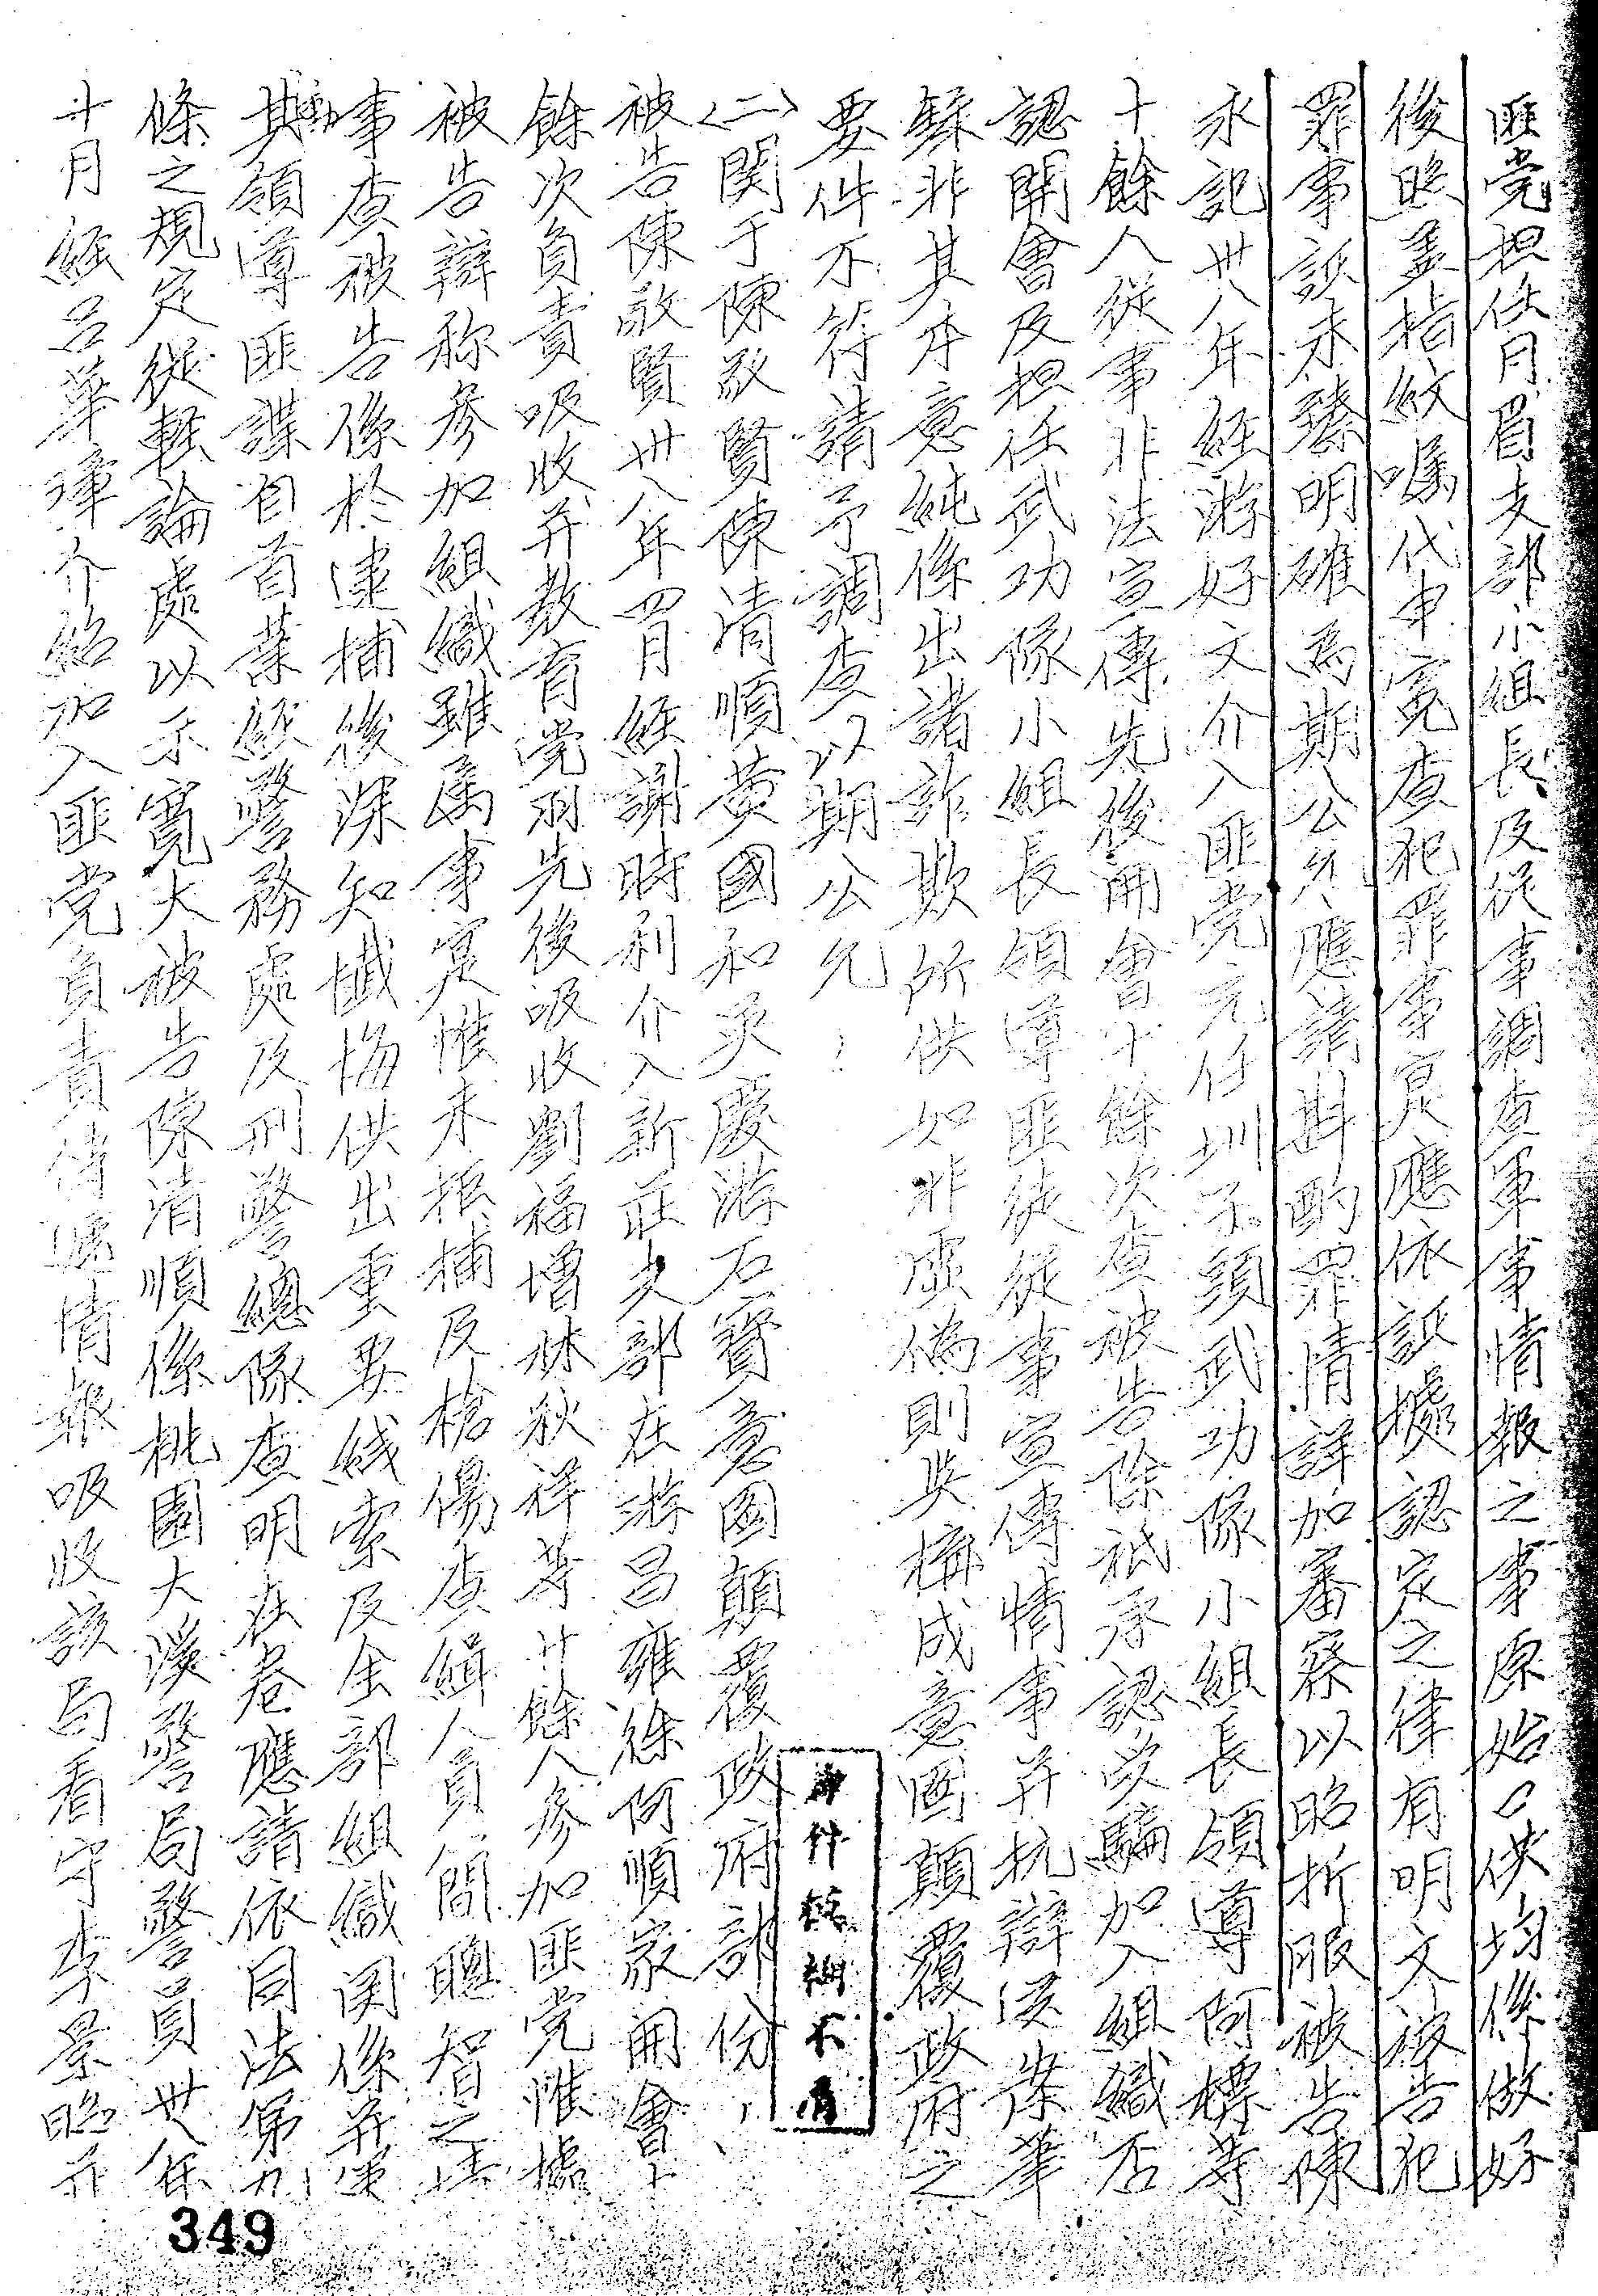 匪党担任月眉支部小組長及從事調查軍事情報之事原始口供均係做好
後照蓋指紋嘱代申寃查犯罪事寔應依証據認定之律有明文被告犯
罪事証未臻明確為期公允應請斟酌罪情詳加審察以昭折服被告陳
永記卅八年經游好文介入匪党充任圳子頭武功隊小組長領導阿標等
十餘人從事非法宣傳先後開會十餘次查被告除祇承認受騙加入組織否
認開會及担任武功隊小組長領導匪徒從事宣傳情事并抗辯沒業筆
録非其本意純係出諸詐欺所供如非虛偽則與構成意圖顛覆政府之
要件不符請予調查以期公允
本件模糊不清
(二)関于陳敬賢陳清順黄國和吳慶游石寶意图顛覆政府部份
被告陳敬賢卅八年四月經謝時利介入新莊支部在游昌雍徐阿順家開會十
餘次負責吸收并教育党羽先後吸收劉福增林秋祥等廿餘人參加匪党惟據
被告辯称參加組織雖属事寔惟未拒捕及槍傷查緝人員簡聰智之
事查被告係於逮捕後深知懺悔供出重要線索及全部組織関係并
其領導匪諜自首業經警務處及刑警總隊查明在卷應請依同法第九
條之規定從輕論處以示寬大被告陳清順係桃園大溪警局警員卅八年
十月經呂華璋介紹加入匪党負責傳遞情報吸收該局看守李景昭
349